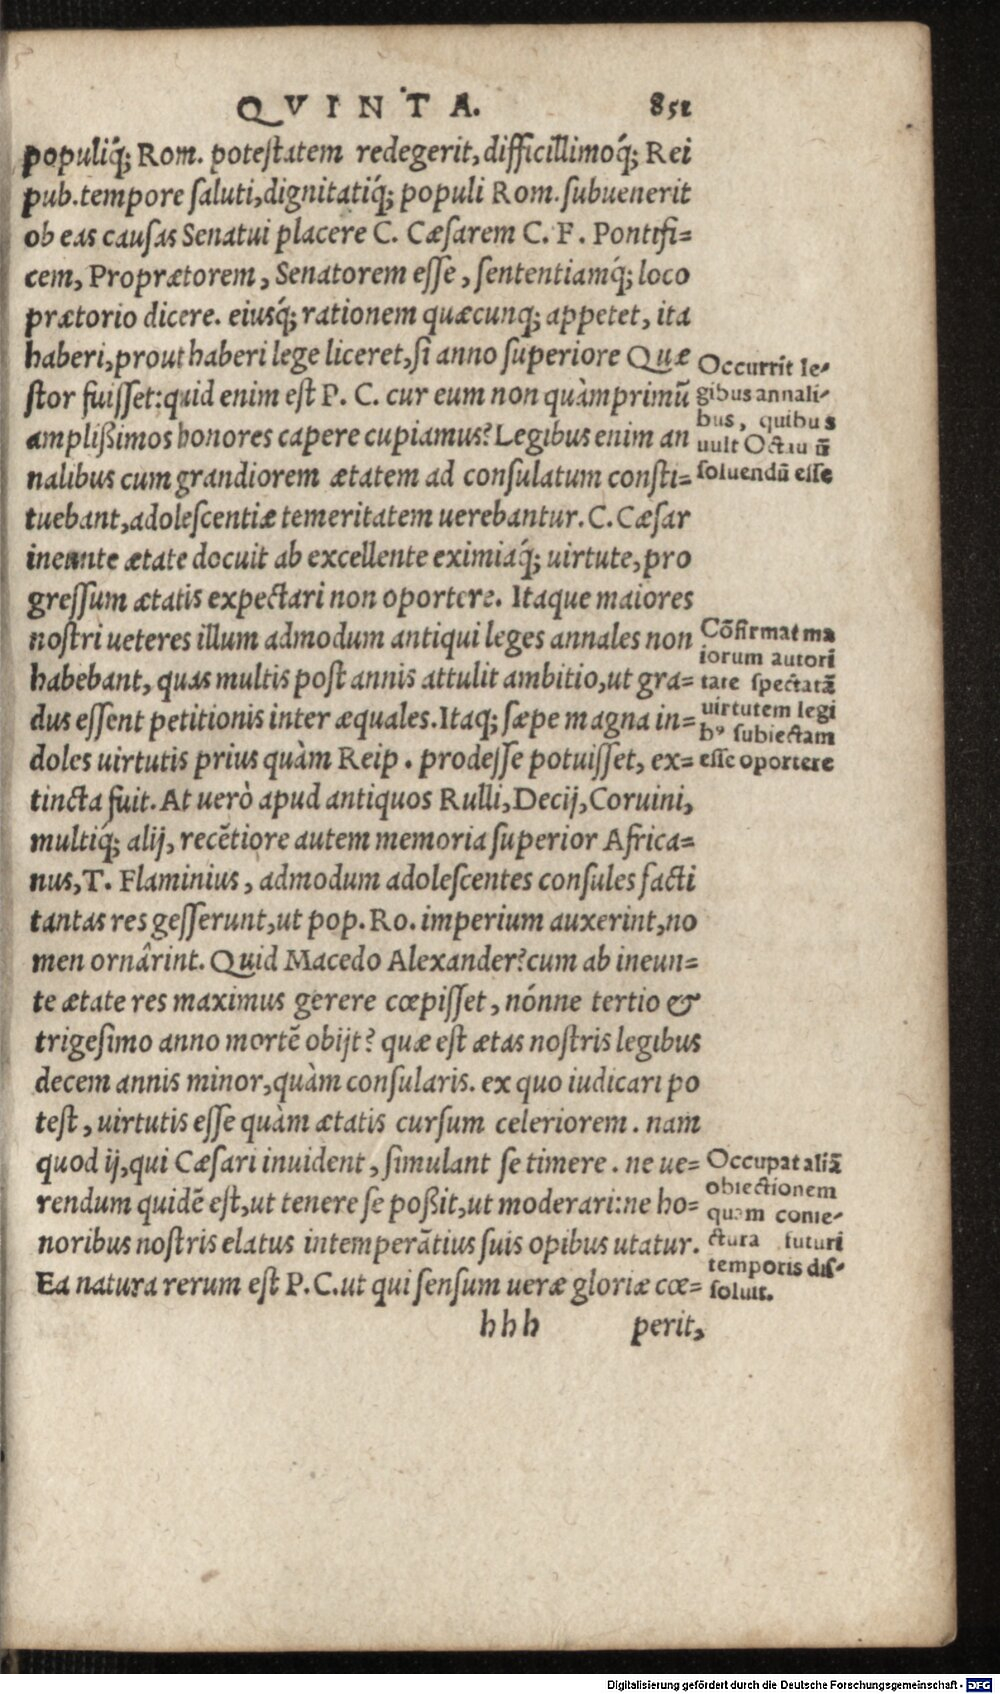 QVINTA. 851
populiq́; Rom. potestatem redegerit, difficillimoq́; Rei
pub. tempore saluti, dignitatiq́; populi Rom. subuenerit
ob eas causas Senatui placere C. Cæsarem C. F. Pontifi=
cem, Proprætorem, Senatorem esse, sententiamq́; loco
prætorio dicere. eiusq́; rationem quæcunq; appetet, ita
haberi, prout haberi lege liceret, si anno superiore Quæ
stor fuisset: quid enim est P. C. cur eum non quàmprimũ
amplißimos honores capere cupiamus? Legibus enim an
nalibus cum grandiorem ætatem ad consulatum consti=
tuebant, adolescentiæ temeritatem uerebantur. C. Cæsar
ineunte ætate docuit ab excellente eximiaq́; uirtute, pro
gressum ætatis expectari non oportere. Itaque maiores
nostri ueteres illum admodum antiqui leges annales non
habebant, quas multis post annis attulit ambitio, ut gra=
dus essent petitionis inter æquales. Itaq; sæpe magna in=
doles uirtutis prius quàm Reip. prodesse potuisset, ex=
tincta fuit. At uerò apud antiquos Rulli, Decij, Coruini,
multiq́; alij, recẽtiore autem memoria superior Africa=
nus, T. Flaminius, admodum adolescentes consules facti
tantas res gesserunt, ut pop. Ro. imperium auxerint, no
men ornârint. Quid Macedo Alexander? cum ab ineun=
te ætate res maximus gerere cœpisset, nónne tertio &
trigesimo anno mortẽ obijt? quæ est ætas nostris legibus
decem annis minor, quàm consularis. ex quo iudicari po
test, uirtutis esse quàm ætatis cursum celeriorem. nam
quod ij, qui Cæsari inuident, simulant se timere. ne ue=
rendum quidẽ est, ut tenere se poßit, ut moderari: ne ho=
noribus nostris elatus intemperãtius suis opibus utatur.
Ea natura rerum est P. C. ut qui sensum ueræ gloriæ cœ=
hhh perit,
Occurrit le-
gibus annali-
bus, quibus
uult Octauiũ
soluendũ esse
Cõfirmat ma
iorum autori
tate spectatã
uirtutem legi
bꝰ subiectam
esse oportere
Occupat aliã
obiectionem
quam conie-
ctura futuri
temporis dis-
soluit.
Digitalisierung gefördert durch die Deutsche Forschungsgemeinschaft - DFG